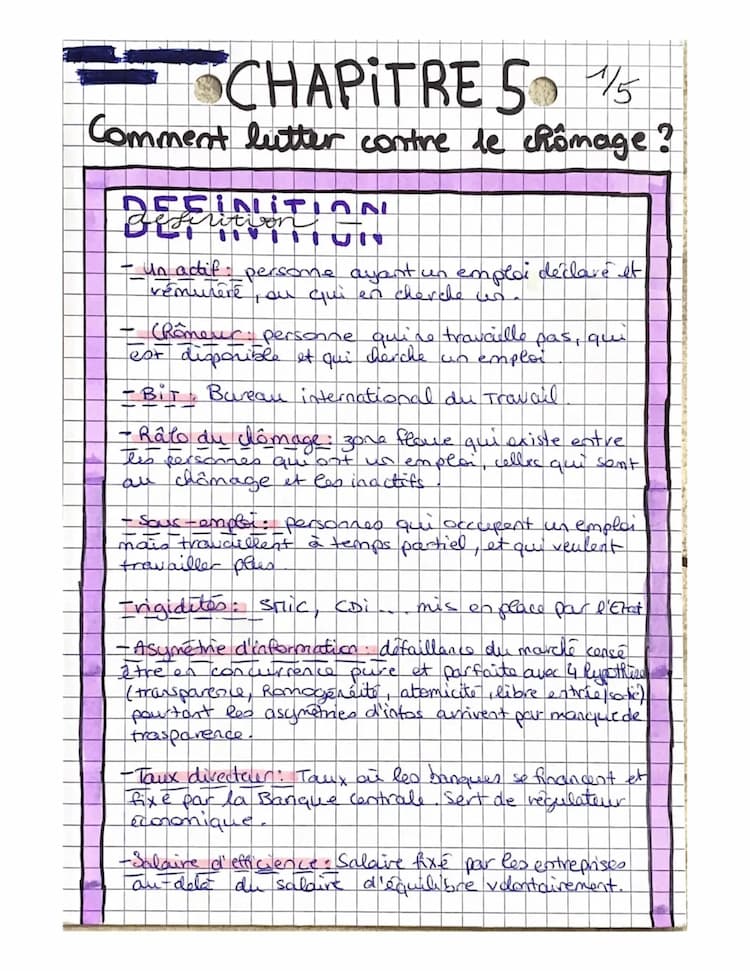 CHAPiTRE 5 1/5
Comment lutter contre le chômage ?
DEFINITION
définition
- Un actif : personne ayant un emploi déclaré et
rémunéré, ou qui en cherche un.
- Chômeur : personne qui ne travaille pas, qui
est disponible et qui cherche un emploi.
- BiT : Bureau international du Travail.
- Hâlo du chômage : zone floue qui existe entre
les personnes qui ont un emploi, celles qui sont
au chômage et les inactifs.
- Sous-emploi : personnes qui occupent un emploi
mais travaillent à temps partiel, et qui veulent
travailler plus.
rigidités : SMic, CDi ... mis en place par l'Etat
- Asymétrie d'information : défaillance du marché censé
être en concurrence pure et parfaite avec 4 hypothèse
(transparence, homogénéité, atomicité, libre entrée/sortie)
pourtant les asymétries d'infos arrivent par manque de
trasparence.
- Taux directeur : Taux où les banques se financent et
fixé par la Banque centrale. Sert de régulateur
économique.
- Salaire d'efficience : Salaire fixé par les entreprises
au-delà du salaire d'équilibre volontairement.